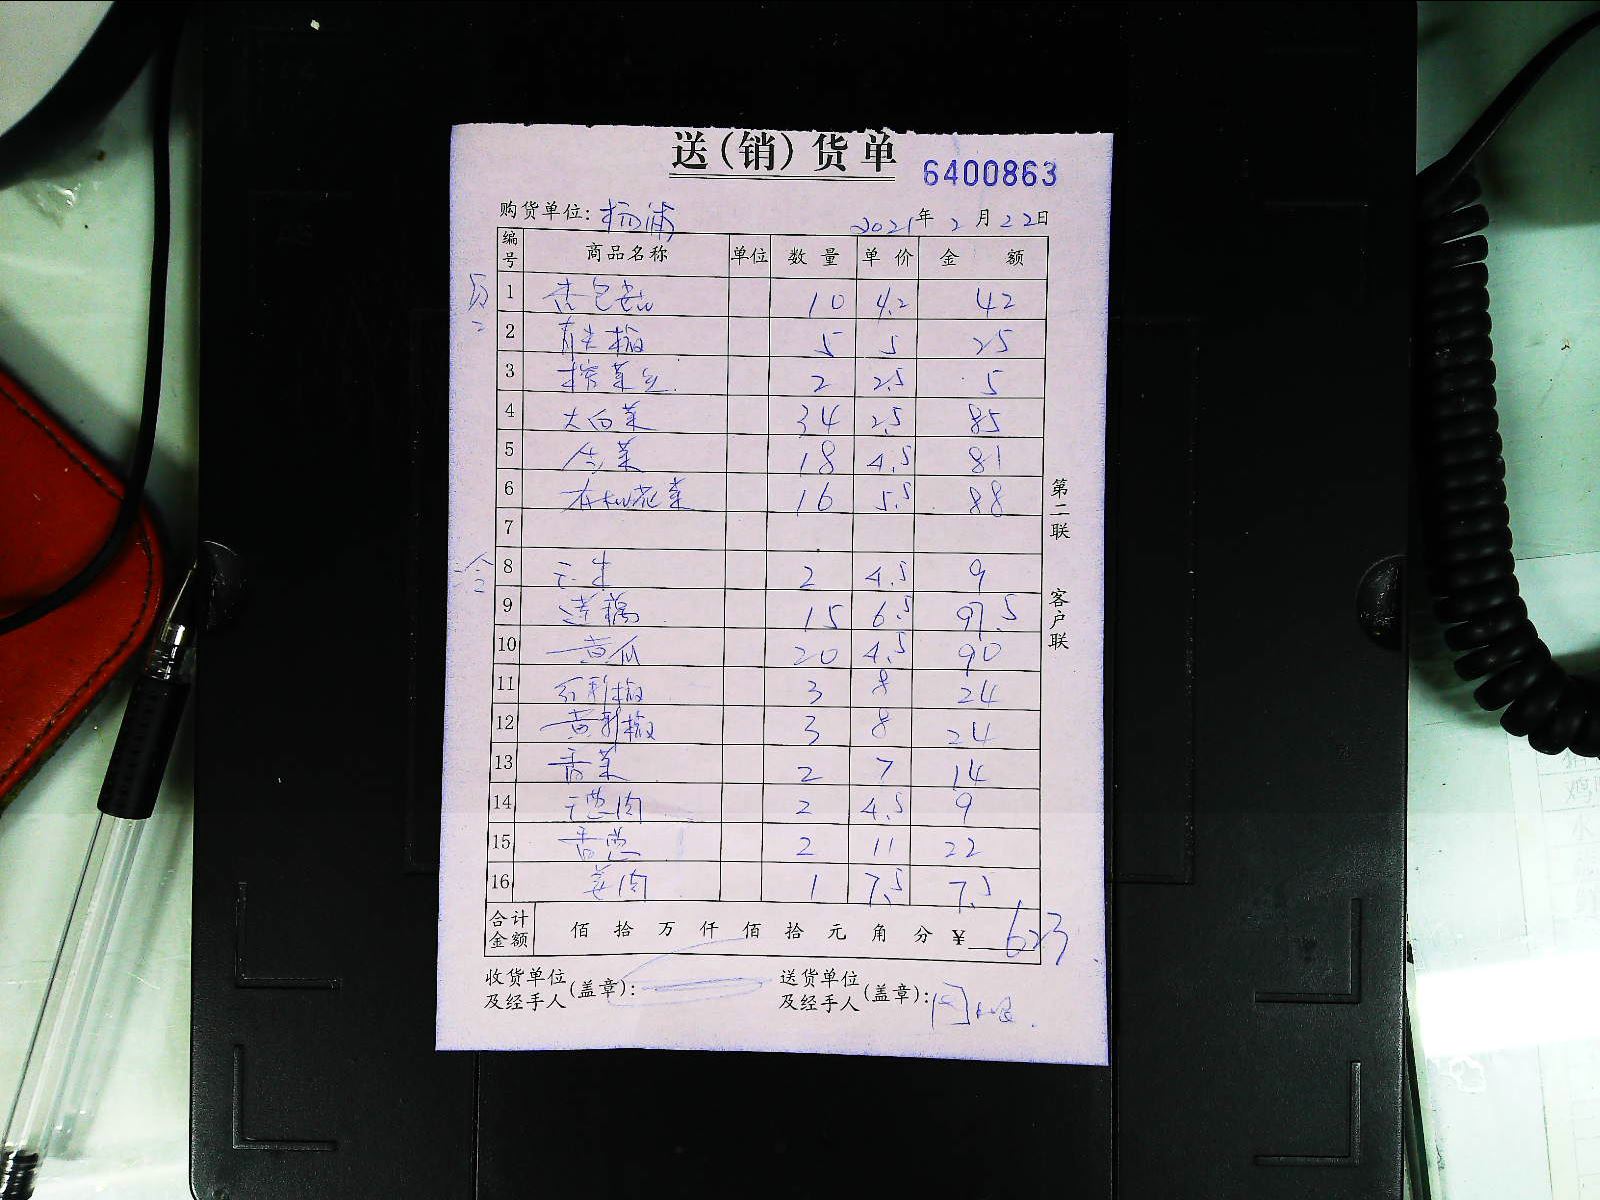 送(销)货单
6400863
购货单位: 杨浦 2021年 2月22日
编号 商品名称 单位 数量 单价 金额
1 杏包菇 10 4.2 42
2 青尖椒 5 5 25
3 榨菜丝 2 2.5 5
4 大白菜 34 2.5 85
5 生菜 18 4.5 81
6 有机花菜 16 5.5 88
7
8 2 4.5 9
9 莲藕 15 6.5 97.5
10 黄瓜 20 4.5 90
11 红彩椒 3 8 24
12 黄彩椒 3 8 24
13 香菜 2 7 14
14 干葱肉 2 4.5 9
15 香葱 2 11 22
16 姜肉 1 7.5 7.5
合计金额 佰 拾 万 仟 佰 拾 元 角 分 ¥ 623
收货单位及经手人(盖章): 送货单位及经手人(盖章):
第二联 客户联